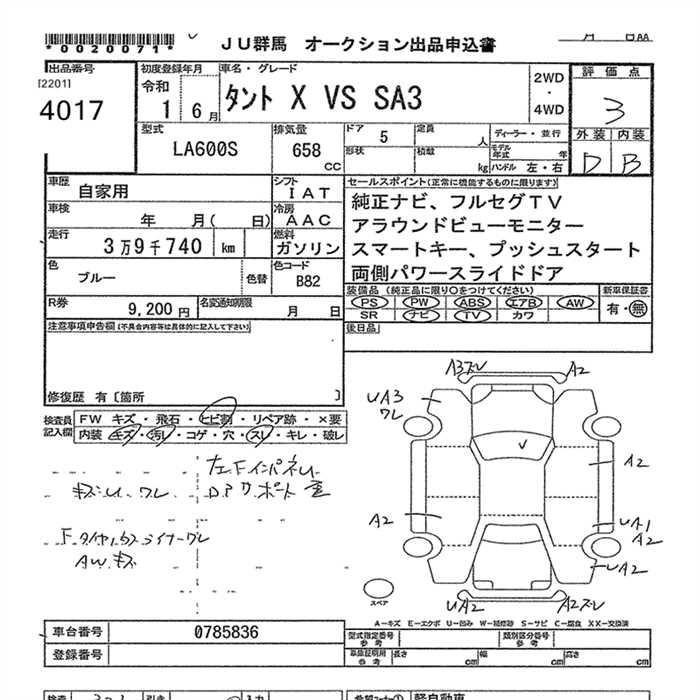 *0020071*
JU群馬 オークション出品申込書
出品番号
[2201]
4017
初度登録年月
令和
1 6月
車名・グレード
タント X VS SA3
2WD
・
4WD
評価点
3
外装 内装
D B
型式
LA600S
排気量
658
CC
ドア 5
形状
定員 人
積載 kg
ディーラー・並行
モデル年式 年
ハンドル 左・右
車歴
自家用
シフト
IAT
車検
年 月( 日)
冷房
AAC
走行
3万9千740 km
燃料
ガソリン
色
ブルー
色替
色コード
B82
R券
9,200円
名変通知期限
月 日
セールスポイント(正常に機能するものに限ります)
純正ナビ、フルセグTV
アラウンドビューモニター
スマートキー、プッシュスタート
両側パワースライドドア
装備品 (純正品に限り○をつけてください)
新車保証書
PS PW ABS エアB AW
有・無
SR ナビ TV カワ
後日品
注意事項申告欄(不具合内容等は具体的に記入して下さい)
修復歴 有〔箇所 〕
検査員
記入欄
FW キズ・飛石・ヒビ割・リペア跡・×要
内装 キズ・汚レ・コゲ・穴・スレ・キレ・破レ
左Fインパネ
キズ ワレ
サポート
F
AW キズ
A3ズレ
A2
UA3
ワレ
A2
A2
UA1
A2
UA2
UA2
A2ズレ
スペア
A-キズ E-エクボ U-凹み W-補修跡 S-サビ C-腐食 XX-交換済
車台番号
0785836
登録番号
型式指定番号
参考
類別区分番号
参考
車庫証明用
参考
長さ cm
幅 cm
高さ cm
軽自動車